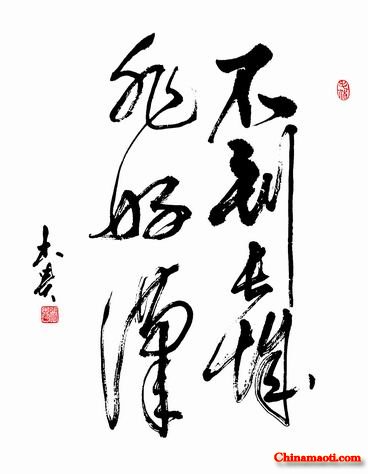 不到长城
非好汉
Chinamaoti.com